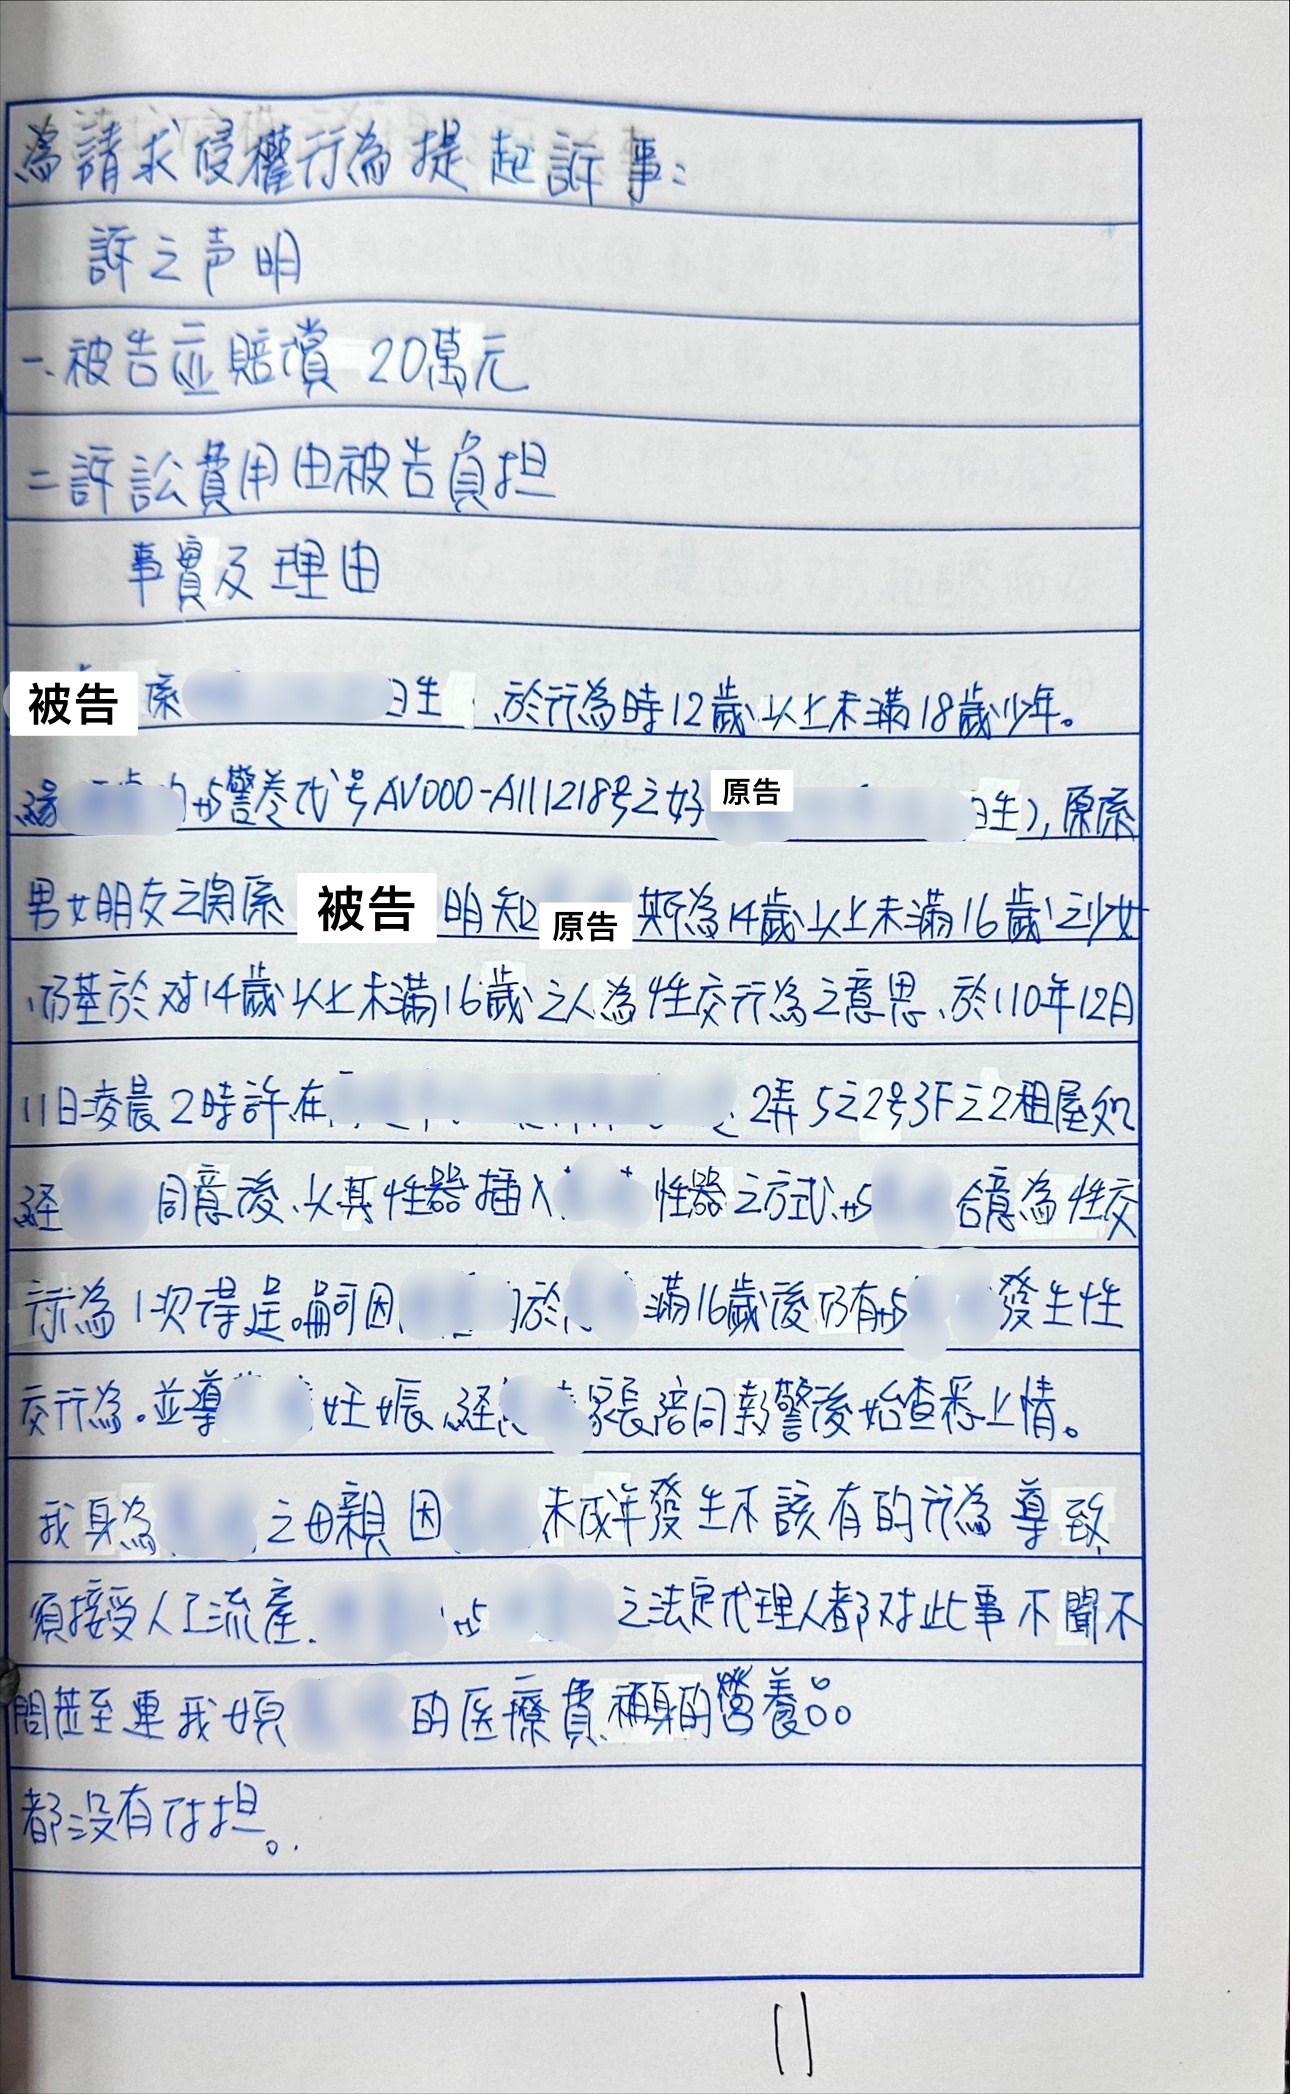 為請求侵權行為提起訴事:
訴之声明
一、被告並賠償 20萬元
二訴訟費用由被告負担
事實及理由
被告 係 日生 、於行為時12歲以上未滿18歲少年。
緣 与警卷代号AV000-A111218号之女子 原告 日生),原係
男女朋友之関係 被告 明知 原告 斯為14歲以上未滿16歲之少女
、仍基於对14歲以上未滿16歲之人為性交行為之意思、於110年12月
11日凌晨2時許、在 2弄5之2号3F之2租屋処
經 同意後、以其性器插入 性器之方式、与 合意為性交
行為1次得逞。嗣因 於 滿16歲後仍有与 發生性
交行為。並導 妊娠、經 家長陪同報警後始查悉上情。
我身為 之母親 因 未成年發生不該有的行為導致
須接受人工流產、 与 之法定代理人都对此事不聞不
問甚至連我女兒 的医療費、補身的營養品。
都沒有付担。
11